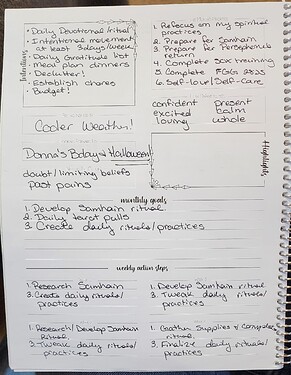 • Daily Devotional/ritual
• Intentional movement
at least 3days/week
• Daily Gratitude list
• Meal plan dinners
• Declutter!
• Establish chores
• Budget!
Intentions
1. Refocus on my spiritual
practices
2. Prepare for Samhain
3. Prepare for Persephone's
return
4. Complete SCX training
5. Complete FGG 2023
6. Self-love/Self-Care
confident present
excited calm
loving whole
Cooler Weather!
Donna's Bday & Halloween!
doubt/limiting beliefs
past pains
Highlights
monthly goals
1. Develop Samhain ritual
2. Daily tarot pulls
3. Create daily rituals/practices
weekly action steps
1. Research Samhain
3. Create daily rituals/
practices
1. Develop Samhain ritual
3. Tweak daily rituals/
practices
1. Research/Develop Samhain
Ritual
3. Tweak daily rituals/
practices
1. Gather Supplies & Complete
ritual
3. Finalize daily rituals/
practices